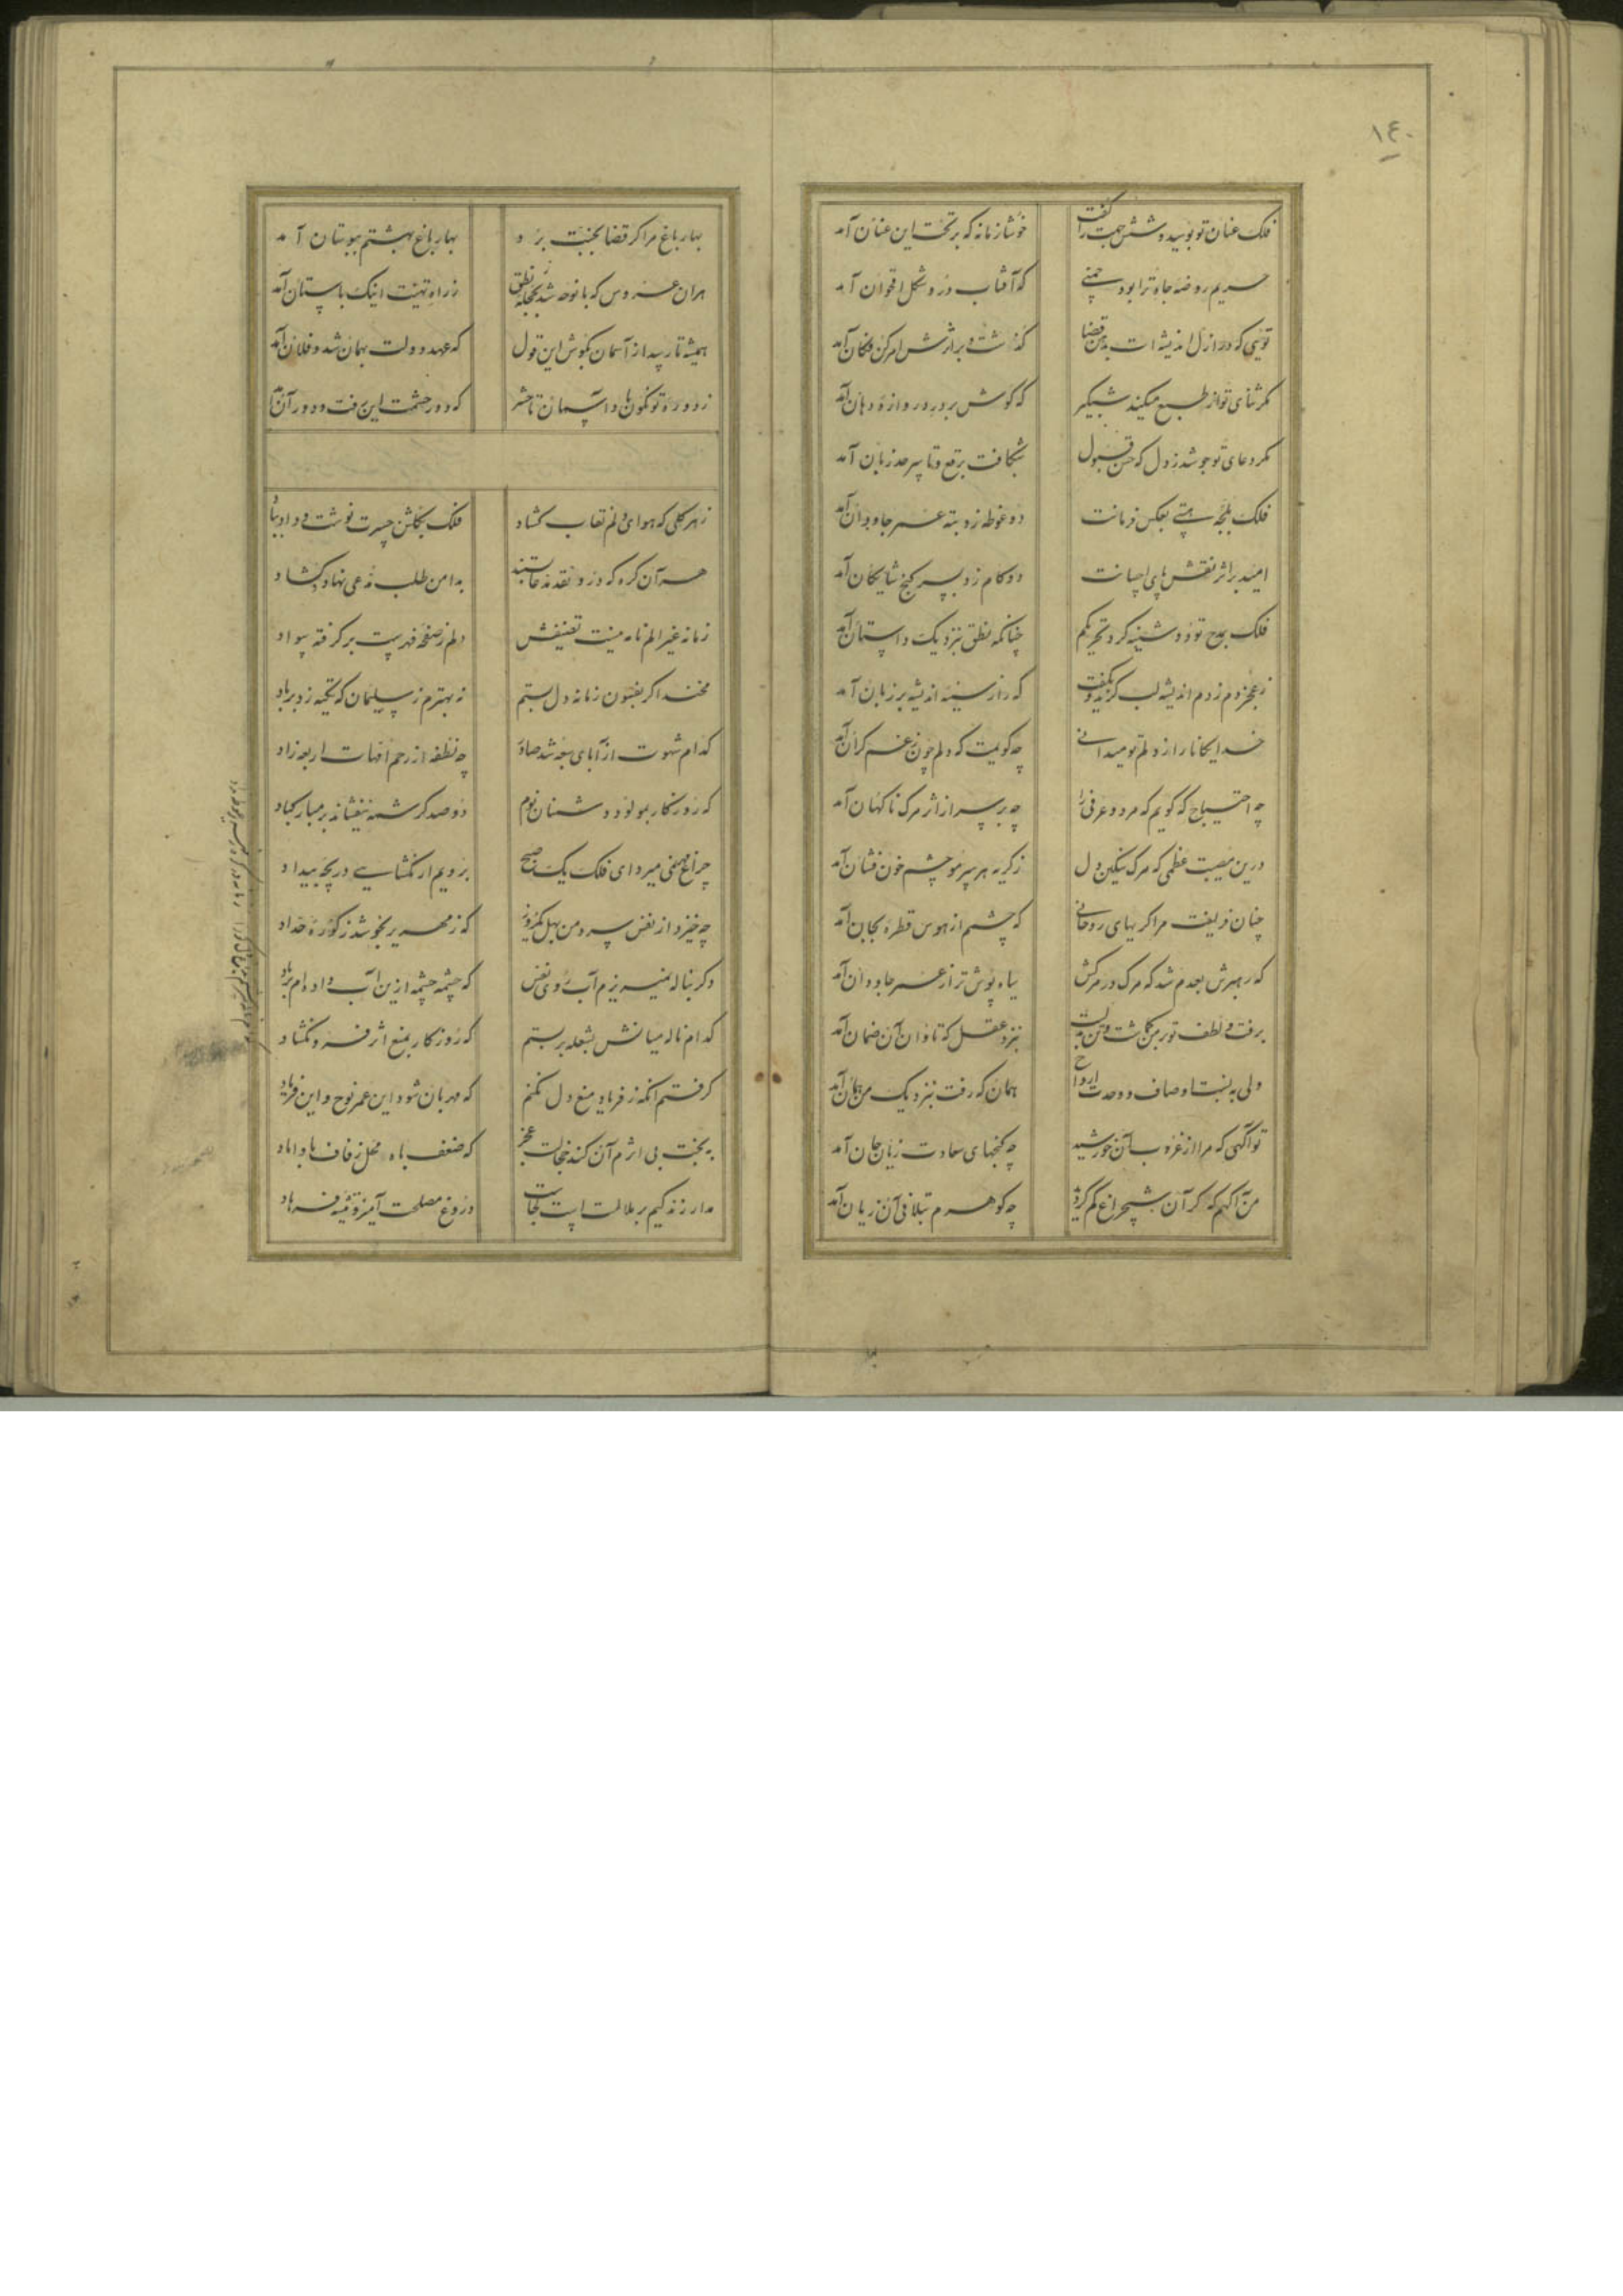 ١٤٠
فلک عنان تو بوسید و شش جهت را گفت
خوشا زمانه که بر تخت این عنان آمد
حریم روضه جاه ترا بود چمنی
که آفتاب درو شکل اقحوان آمد
توئی که در ازل اندیشه ات بذهن قضا
گذشت و بر اثرش امر کن فکان آمد
مگر ثنای تو از طبع میکند شبگیر
که گوش بر در دروازهٔ دهان آمد
مگر دعای تو جوشد ز دل که حسن قبول
شکافت برقع و تا سرحد زبان آمد
فلک بلجهٔ هستی بعکس فرمانت
دو غوطه زد بته عمر جاودان آمد
امید بر اثر نقش پای احسانت
دو کام زد بسر گنج شایگان آمد
فلک بمدح تو دوشینه کرد تحریکم
چنانکه نطق بنزدیک داستان آمد
ز عجز دم زدم اندیشه لب گزید و بگفت
که راز سینه اندیشه بر زبان آمد
خدایگانا راز دلم تو میدانی
چه گویمت که دلم چون ز غم گران آمد
چه احتیاج که گویم که مرد و عرفی را
چه بر سر از اثر مرک ناگهان آمد
درین مصیبت عظمی که مرک سنگین دل
ز گریه هر سر مو چشم خون فشان آمد
چنان فریفت مرا گریهای روحانی
که چشمم از هوس قطره بجان آمد
که رهبرش بعدم شد که مرک در مرکش
سیاه پوش تر از عمر جاودان آمد
برفت و لطف تو بر من گماشت و این دولت
بنزد عقل که تاوان آن ضمان آمد
ولی به نسبت اوصاف وحدت ارواح
همان که رفت بنزدیک من همان آمد
تو آگهی که مرا از غروب آن خورشید
چه گنجهای سعادت زیان جان آمد
من آگهم که گر آن شبچراغ گم کردید
چه گوهرم بتلافی آن زیان آمد
بهار باغ مرا گر قضا بجنت برد
بهار باغ بهشتم ببوستان آمد
هر آن عروس که با نوحه شد بحجله نطق
ز راه تهنیت اینک بآستان آمد
همیشه تا رسد از آسمان بگوش این قول
که عهد دولت بهمان شد و فلان آمد
ز دور تو نکوناد آسمان تا حشر
که دور حشمت این رفت و دور آن آمد
ز هر گلی که هوای دلم نقاب گشاد
فلک بگلشن حسرت نوشت و داد بباد
هر آن گره که درو نقد مدعا بستند
بدامن طلب مدعی نهاد و گشاد
زمانه غیر الم نامه نیست تصنیفش
دلم ز صفحه فهرست بر گرفته سواد
مخند اگر بفنون زمانه دل بستم
نه بهترم ز سلیمان که تکیه زد بر باد
کدام شهوت از آبای سبعه شد صادر
چه نطفه از رحم امهات اربعه زاد
که روزگار بمولود دشمنان نوم
دو صد کرشمه نیفشاند بر مبارکباد
چراغ مهنی میرد ای فلک یک صبح
برویم ار نگشایی دریچه بیداد
چه خیزد از نفس سرد من بهل کامروز
که زمهریر بجوشد ز کورهٔ حداد
وگر بناله نمیریزم آب روی نفس
که چشمه چشمه ازین آب داده ام بر باد
کدام ناله میانش بشعله بر بستم
که روزگار بمنع اثر فرو نگشاد
گرفتم آنکه ز فریاد منع دل نکنم
که مهربان شود این عمر نوح و این فریاد
به بخت بی اثرم آن کند خجالت عجز
که ضعف باه به محفل زفاف با داماد
مدار زندگیم بر ملالت است کجاست
دروغ مصلحت آمیز و تیشه فرهاد